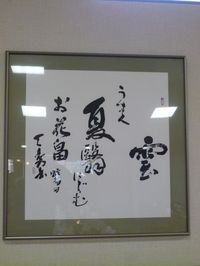 雲
うすく
夏翳にじむ
お花畠